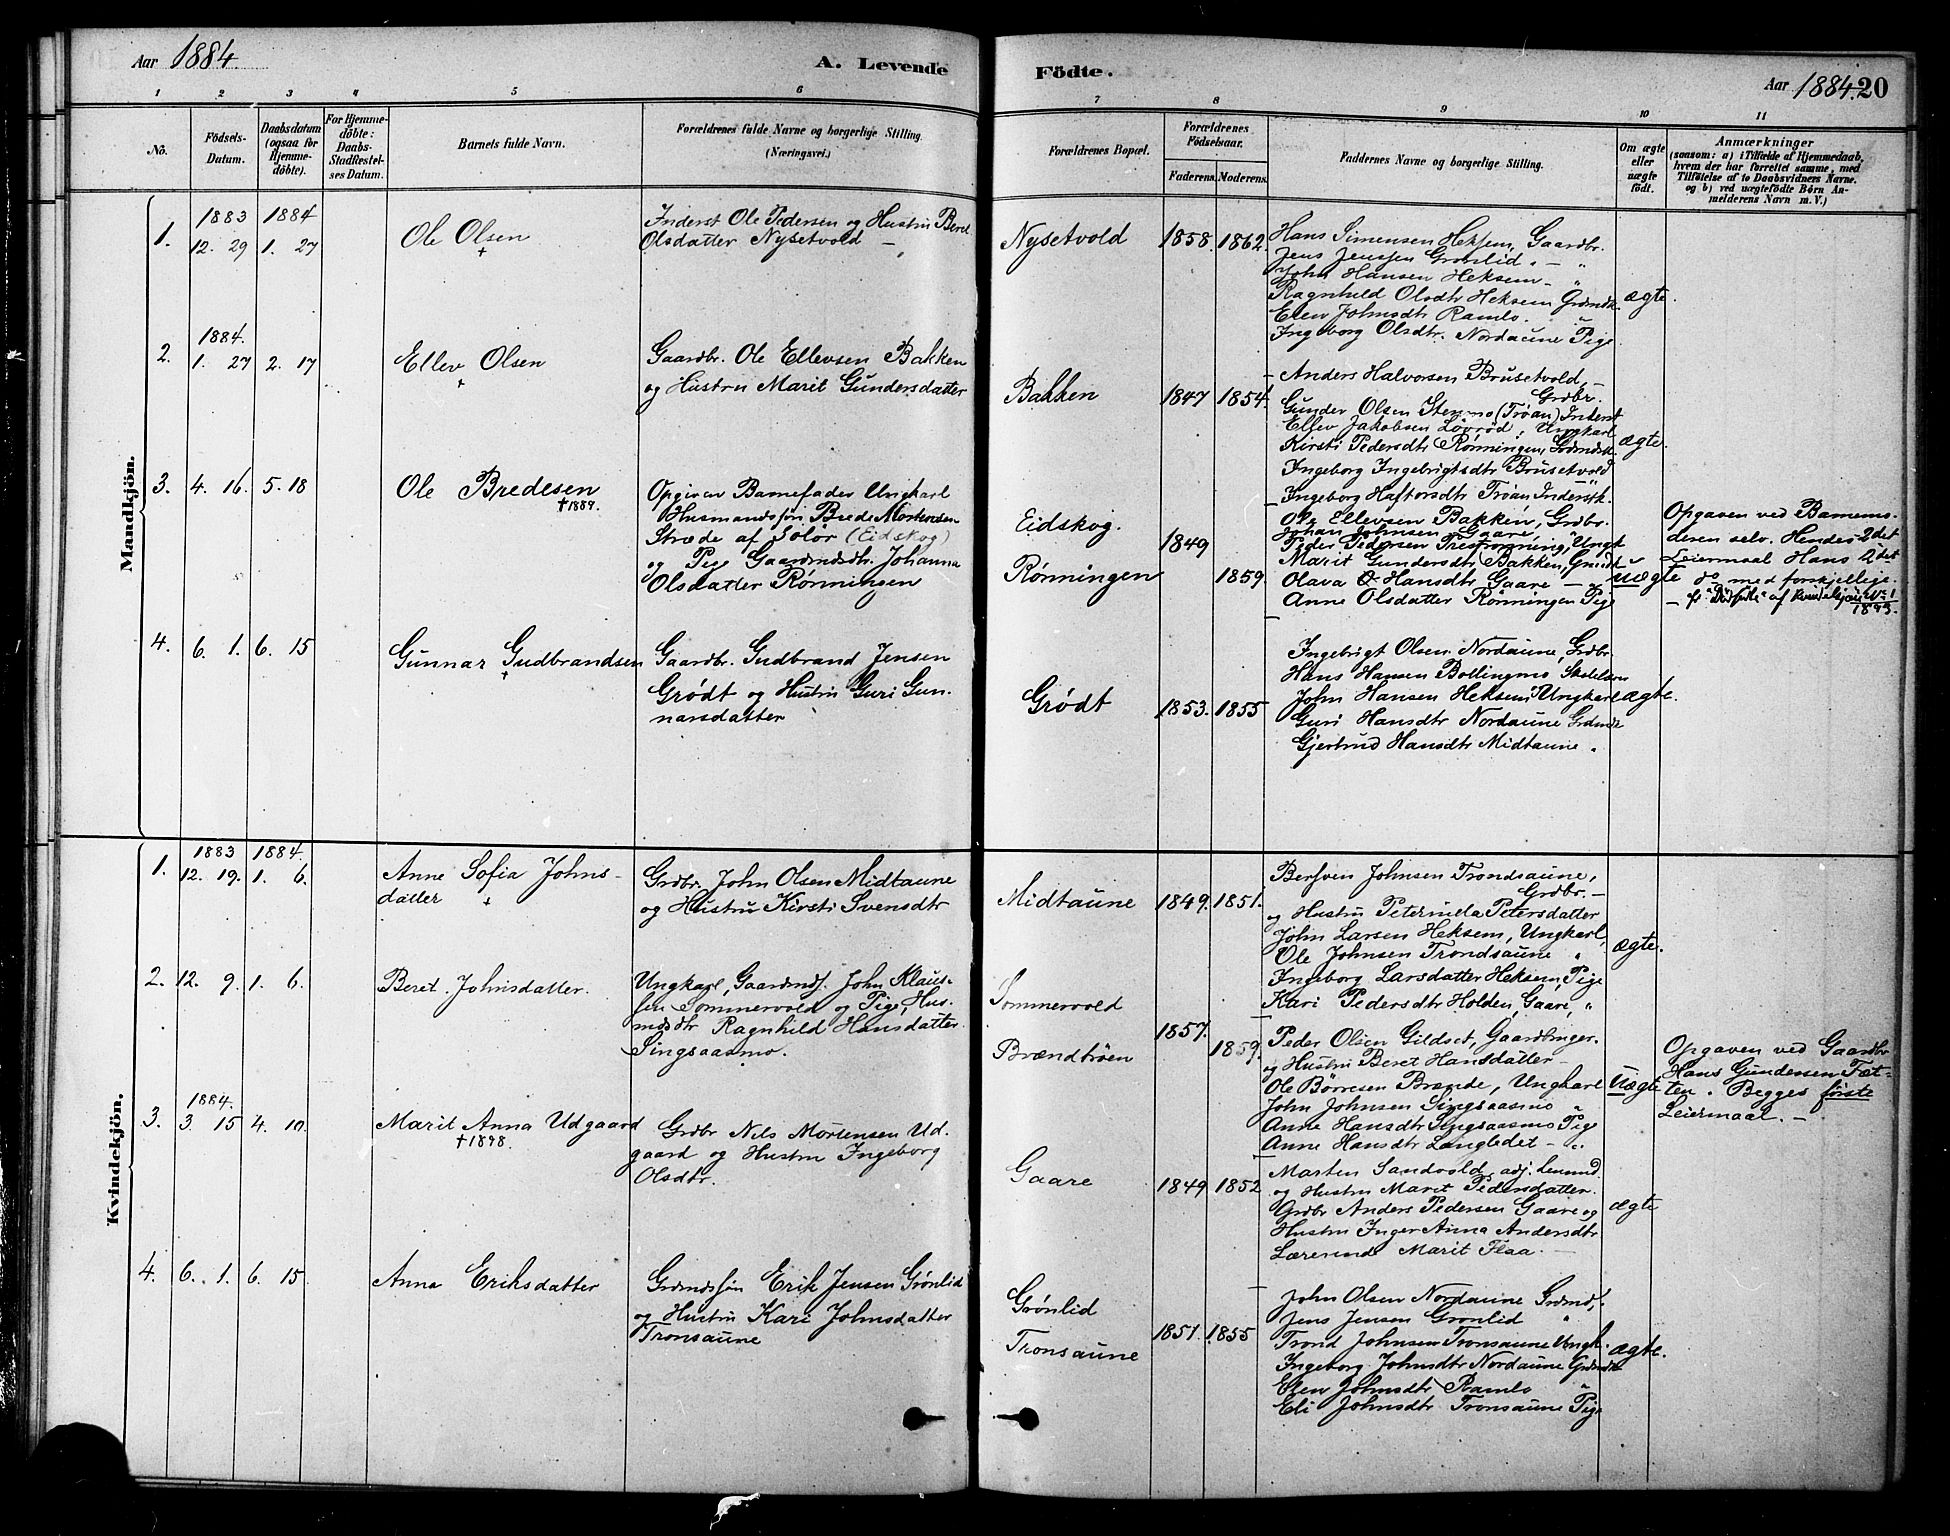 Aar 1884.
A. Levende
Födte.
Aar 1884. 20
1 2 3 4 5 6
7 8 9 10 11
No.
Födsels-
Datum.
Daabsdatum
(ogsaa for
Hjemme-
döbte).
For Hjemme-
döbte:
Daabs-
Stadfæstel-
ses Datum.
Barnets fulde Navn.
Forældrenes fulde Navne og borgerlige Stilling.
(Næringsvei.)
Forældrenes Bopæl.
Forældrenes
Födselsaar.
Faderens. Moderens.
Faddernes Navne og borgerlige Stilling.
Om ægte
eller
uægte
født.
Anmærkninger
(saasom: a) i Tilfælde af Hjemmedaab,
hvem der har forrettet samme, med
Tilföielse af to Daabsvidners Navne.
og b) ved uægtefödte Börn An-
melderens Navn m. V.)
Mandkjön.
1.
1883 1884
12. 29 1. 27
Ole Olsen
+
Inderst Ole Pedersen og Hustru Beret
Olsdatter Nysetvold –
Nysetvold
1858. 1862.
Hans Simensen Heksem, Gaardbr.
Jens Jensen Grønlid. – "
John Hansen Heksem – "
Ragnhild Olsdtr Heksem Grdmdk.
Elen Johnsdtr Ramlo. "
Ingeborg Olsdtr. Nordaune Pige
ægte.
2.
1884.
1. 27 2. 17
Ellev Olsen
+
Gaardbr. Ole Ellevsen Bakken
og Hustru Marit Gundersdatter
Bakken
1847 1854.
Anders Halvorsen Brusetvold, –
Grdbr.
Gunder Olsen Stenmo (Trøan) Inderst
Ellev Jakobsen Løvrød, Ungkarl
Kirsti Pedersdtr Rønningen, Grdmdsk.
Ingeborg Ingebrigtsdtr Brusetvold
Ingeborg Haftorsdtr Trøan Inderstk.
ægte.
3. 4. 16. 5. 18
Ole Bredesen
†1889.
Opgiven Barnefader Ungkarl
Husmandssøn Brede Mortensen
Stræde af Solør (Eidskog)
og Pige Gaardmdsdtr. Johanna
Olsdatter Rønningen
Eidskog.
Rønningen
1849
1859.
Ole Ellevsen Bakken, Grdbr.
Johan Johnsen Gaare,
Peder Pedersen Trøstrønning, Ungk
Marit Gundersdtr Bakken, Grmdk
Olava O. Hansdtr Gaare –
Anne Olsdatter Rønningen Pige
uægte
Opgaven ved Barnemo-
deren selv. Hendes 2det
Leiermaal Hans 2det
do med forskjellige.
– fr "Dødfødte" af Kvindekjøn No 1
1893.
4. 6. 1. 6. 15
Gunnar Gudbrandsen
+
Gaardbr. Gudbrand Jensen
Grødt og Hustru Guri Gun-
narsdatter
Grødt
1853. 1855
Ingebrigt Olsen Nordaune, Grdbr.
Hans Hansen Bollingmo
John Hansen Heksem Ungkarl
Guri Hansdtr Nordaune Grdmdk
Gjertrud Hansdtr Midtaune "
ægte.
Kvindekjön.
1.
1883 1884.
12. 19. 1. 6.
Anne Sofia Johns-
datter +
Grdbr. John Olsen Midtaune
og Hustru Kirsti Svensdtr
Midtaune
1849. 1851.
Bersven Johnsen Trondsaune,
Grdbr. –
og Hustru Peternila Petersdatter
John Larsen Heksem, Ungkarl,
Ole Johnsen Trondsaune "
Ingeborg Larsdatter Heksem, Pige
Kari Pedersdtr Holden, Gaare, "
ægte.
2. 12. 9. 1. 6.
Beret Johnsdatter.
Ungkarl, Gaardmds. John Klaus-
sen Sommervold og Pige, Hus-
mdsdtr Ragnhild Hansdatter
Singsaasmo.
Sommervold
Brændtrøen
1857.
1859.
Peder Olsen Gildset, Gaardbruger.
og Hustru Beret Hansdatter –
Ole Børresen Brænde, Ungkarl
John Johnsen Singsaasmo
Anne Hansdtr Singsaasmo Pige
Anne Hansdtr Langledet – "
Uægte
Opgaven ved Gaardbr
Hans Gundersen Fæt-
ten. Begges første
Leiermaal. –
3.
1884.
3. 15 4. 10.
Marit Anna Udgaard
†1898.
Grdbr Nils Mortensen Ud-
gaard og Hustru Ingeborg
Olsdtr.
Gaare
1849 1852
Marten Sandvold, adj. Lensmd
og Hustru Marit Pedersdatter.
Grdbr Anders Pedersen Gaare og
Hustru Inger Anna Andersdtr
Lærerinde Marit Flaa. –
ægte
4. 6. 1. 6. 15
Anna Eriksdatter
Grdmdsøn Erik Jensen Grønlid
og Hustru Kari Johnsdatter
Tronsaune
Grønlid
Tronsaune
1851. 1855
John Olsen Nordaune Grdmd,
Jens Jensen Grønlid "
Trond Johnsen Tronsaune Ungk.
Ingeborg Johnsdtr Nordaune Grdmdk
Elen Johnsdtr Ramlo "
Eli Johnsdtr Tronsaune Pige
ægte.